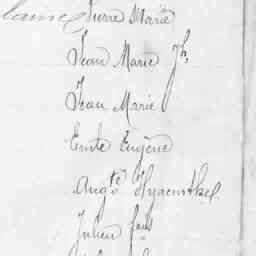 Pierre Marie
Jean Marie Jh
Jean Marie
Emile Eugène
Augte Hyacinthe
Julien fois